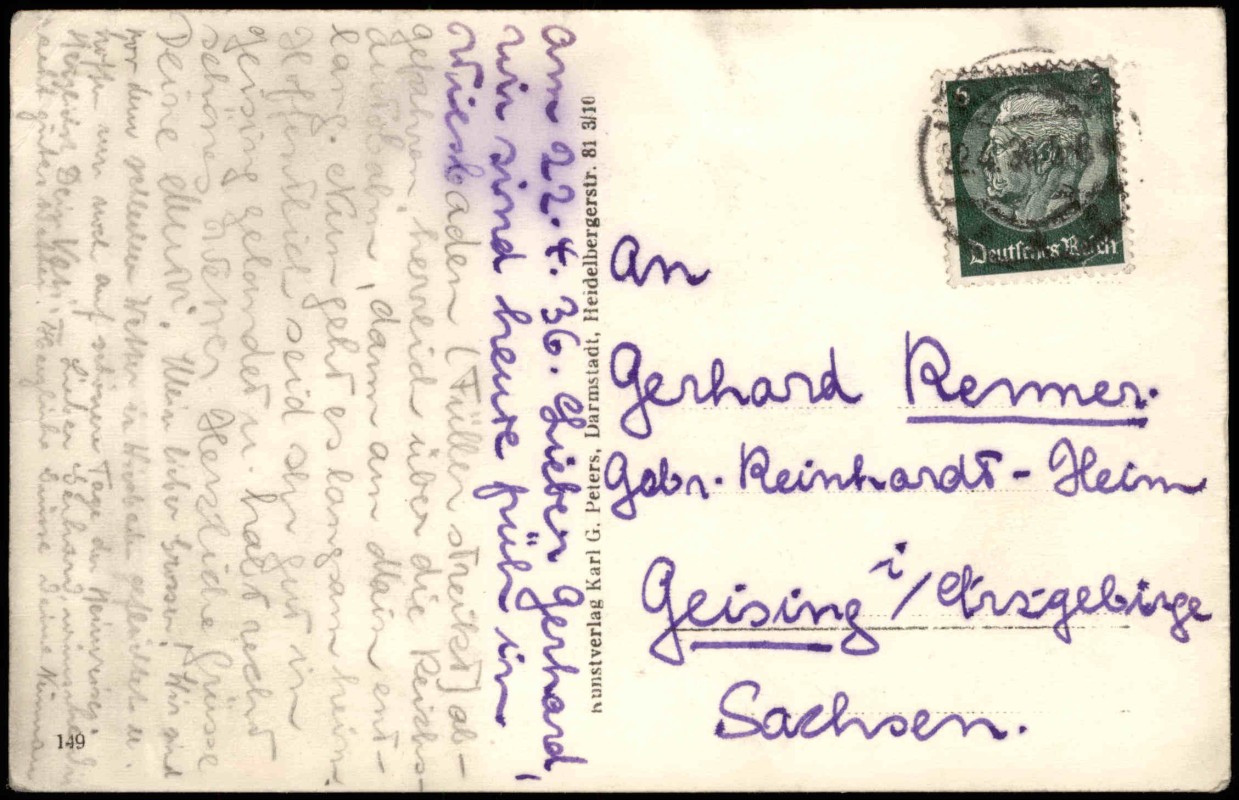 Am 22.4.36. Lieber Gerhard,
wir sind heute früh in
Wiesbaden (Füller streikt) ab-
gefahren, herrlich über die Reichs-
autobahn, dann am Main ent-
lang. Nun geht es langsam heim.
Hoffentlich seid Ihr gut in
Geising gelandet u. habt recht
schönes Wetter. Herzliche Grüsse
Deine Mutti. Mein lieber Grosser, Wir sind
vor dem schlechten Wetter in
hoffen nun noch auf schönere Tage der Heimreise.
Herzlichst Dein Vati. Lieber Gerhard,
recht gutes Herzliche Grüsse Deine
149
Kunstverlag Karl G. Peters, Darmstadt, Heidelbergerstr. 81 3/10
6 6
Deutsches Reich
An
Gerhard Renner.
Gebr. Reinhardt-Heim
Geising i/Erzgebirge
Sachsen.